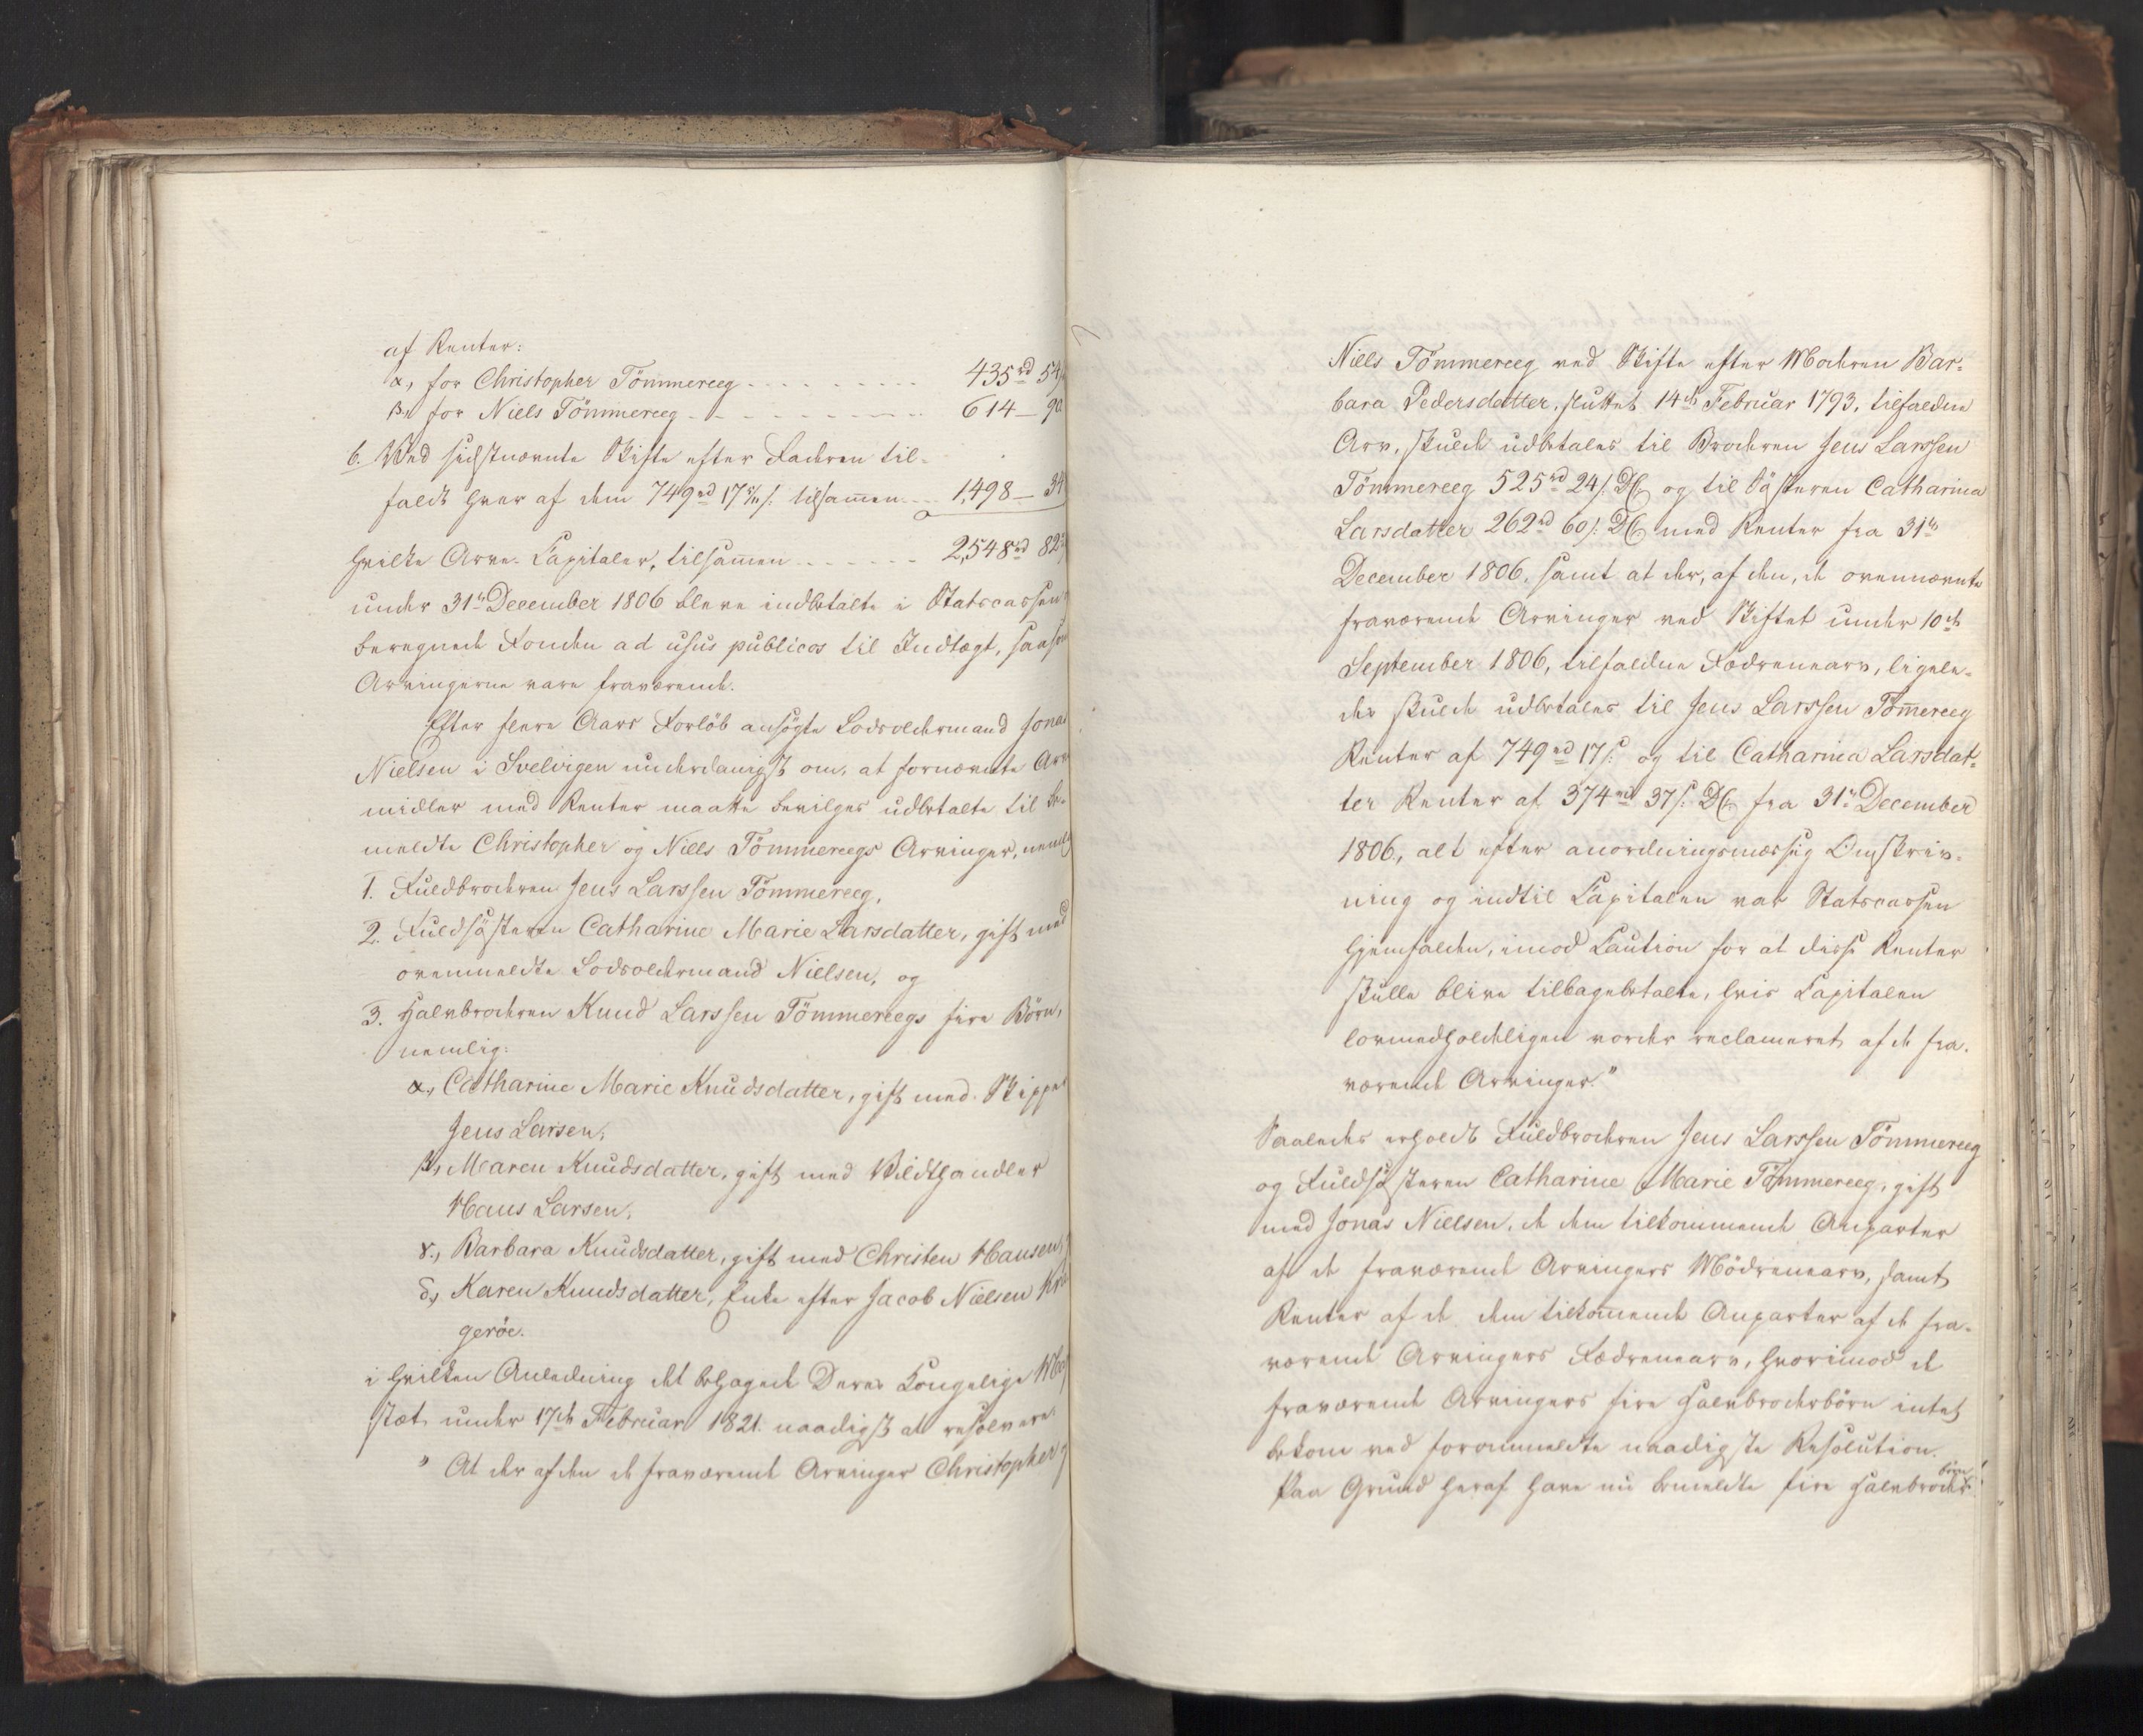 af Renter:
α, for Christopher Tömmereeg - - - - - - - - 435 rd 54
β, for Niels Tömmereeg - - - - - - - - 614 - 90
b. Ved sidstnævnte Skifte efter Faderen til-
faldt hver af dem 749 rd 17 s. tilsamen - - 1,498 - 34
hvilke Arve-Capitaler, tilsamen - - - - - - - 2,548 rd 82
under 31te December 1806 bleve indbetalte i Statscassens
beregnede Fonden ad usus publicos til Indtægt, saasom
Arvingerne vare fraværende.
Efter flere Aars Forløb ansøgte Lodsoldermand Jonas
Nielsen i Svelvigen underdanigst om, at fornævnte Arve
midler med Renter maatte bevilges udbetalte til be-
meldte Christopher og Niels Tömmereegs Arvinger, nemlig
1. Fuldbroderen Jens Larssen Tömmereeg,
2. Fuldsøsteren Catharine Marie Larsdatter, gift med
ovenmeldte Lodsoldermand Nielsen, og
3. Halvbroderen Knud Larssen Tömmereegs fire Börn,
nemlig:
α, Catharine Marie Knudsdatter, gift med Skipper
Jens Larsen,
β, Maren Knudsdatter, gift med Vildthandler
Hans Larsen,
γ, Barbara Knudsdatter, gift med Christen Hansen,
δ, Karen Knudsdatter, Enke efter Jacob Nielsen Kra
geröe.
i hvilken Anledning det behagede Deres Kongelige May
stæt under 17de Februar 1821. naadigst at resolvere:
" At der af den de fraværende Arvinger Christopher
Niels Tömmereeg ved Skifte efter Moderen Bar-
bara Pedersdatter, sluttet 14de Februar 1793, tilfaldne
Arv, skulde udbetales til Broderen Jens Larssen
Tömmereeg 525 rd 24 s. DC og til Søsteren Catharina
Larsdatter 262 rd 60 s. DC med Renter fra 31te
December 1806. samt at der, af den, de ovennævnte
fraværende Arvinger ved Skiftet under 10de
September 1806, tilfaldne Fædrenearv, ligele-
des skulde udbetales til Jens Larssen Tömereeg
Renter af 749 rd 17 s. og til Catharina Larsdat-
ter Renter af 374 rd 37 s. DC fra 31te December
1806, alt efter anordningsmæssig Omskriv-
ning og indtil Capitalen var Statscassen
hjemfalden, imod Caution for at disse Renter
skulle blive tilbagebetalte, hvis Capitalen
lovmedholdeligen vorder reclameret af de fra-
værende Arvinger."
Saaledes erholdt Fuldbroderen Jens Larssen Tömmereeg
og Fuldsøsteren Catharine Marie Tömmereeg, gift
med Jonas Nielsen, de dem tilkommende Anparter
af de fraværende Arvingers Mödrenearv, samt
Renter af de dem tilkomende Anparter af de fra-
værende Arvingers Fædrenearv, hvorimod de
fraværende Arvingers fire Halvbroderbörn intet
bekom ved forommeldte naadigste Resolution.
Paa Grund heraf have nu bemeldte fire Halvbroderbörn